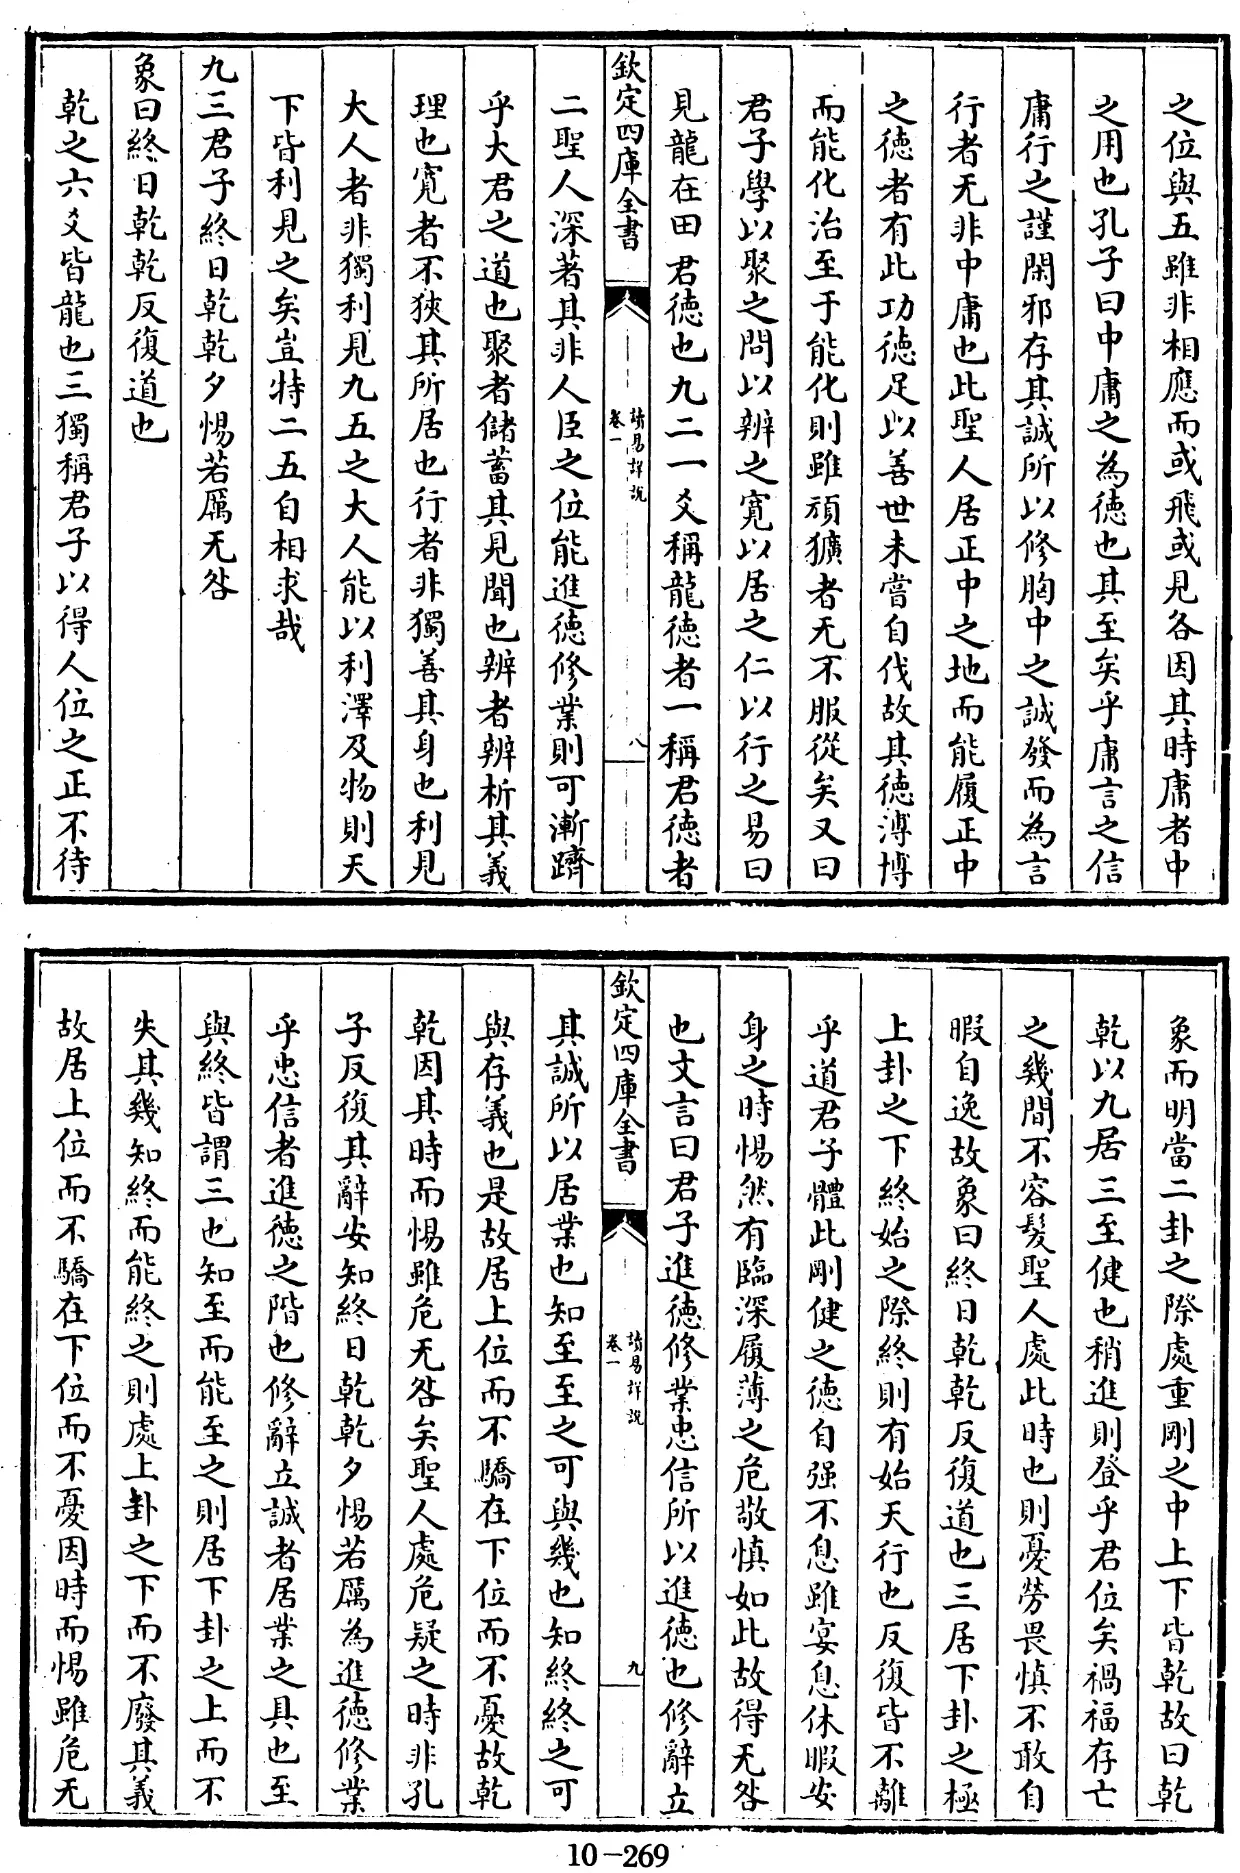 之位與五雖非相應而或飛或見各因其時庸者中
之用也孔子曰中庸之為德也其至矣乎庸言之信
庸行之謹閑邪存其誠所以修胸中之誠發而為言
行者无非中庸也此聖人居正中之地而能履正中
之德者有此功德足以善世未嘗自伐故其德溥博
而能化治至于能化則雖頑獷者无不服從矣又曰
君子學以聚之問以辨之寬以居之仁以行之易曰
見龍在田君德也九二一爻稱龍德者一稱君德者
欽定四庫全書
讀易詳說
卷一
八
二聖人深著其非人臣之位能進德修業則可漸躋
乎大君之道也聚者儲蓄其見聞也辨者辨析其義
理也寬者不狹其所居也行者非獨善其身也利見
大人者非獨利見九五之大人能以利澤及物則天
下皆利見之矣豈特二五自相求哉
九三君子終日乾乾夕惕若厲无咎
象曰終日乾乾反復道也
乾之六爻皆龍也三獨稱君子以得人位之正不待
象而明當二卦之際處重剛之中上下皆乾故曰乾
乾以九居三至健也稍進則登乎君位矣禍福存亡
之幾間不容髮聖人處此時也則憂勞畏慎不敢自
暇自逸故象曰終日乾乾反復道也三居下卦之極
上卦之下終始之際終則有始天行也反復皆不離
乎道君子體此剛健之德自强不息雖宴息休暇安
身之時惕然有臨深履薄之危敬慎如此故得无咎
也文言曰君子進德修業忠信所以進德也修辭立
欽定四庫全書
讀易詳說
卷一
九
其誠所以居業也知至至之可與幾也知終終之可
與存義也是故居上位而不驕在下位而不憂故乾
乾因其時而惕雖危无咎矣聖人處危疑之時非孔
子反復其辭安知終日乾乾夕惕若厲為進德修業
乎忠信者進德之階也修辭立誠者居業之具也至
與終皆謂三也知至而能至之則居下卦之上而不
失其幾知終而能終之則處上卦之下而不廢其義
故居上位而不驕在下位而不憂因時而惕雖危无
10-269